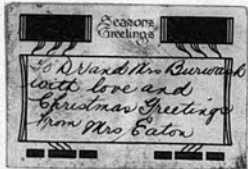 Seasons
Greetings
To Dr and Mrs Burwash
with love and
Christmas Greetings
From Mrs Eaton